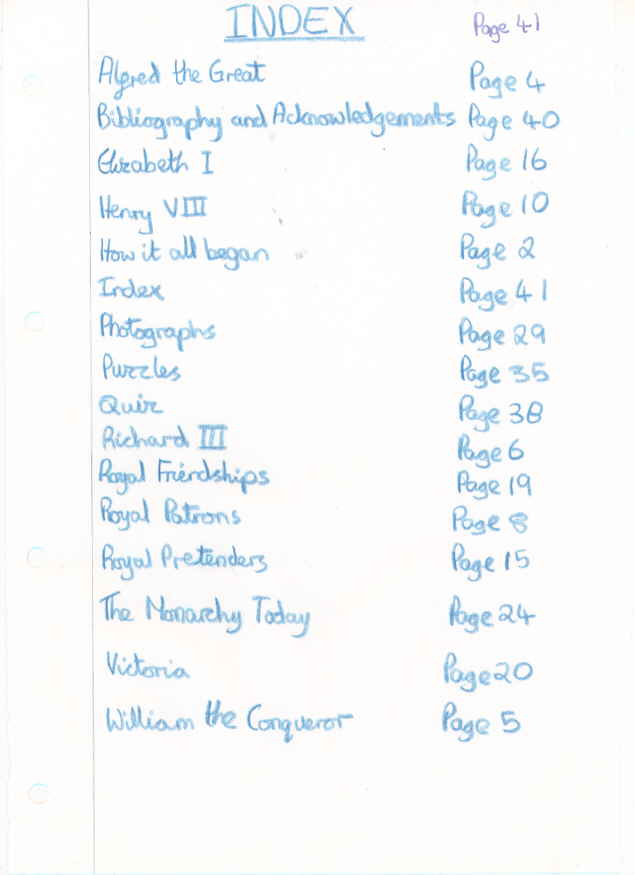 INDEX Page 41
Alfred the Great Page 4
Bibliography and Acknowledgements Page 40
Elizabeth I Page 16
Henry VIII Page 10
How it all began Page 2
Index Page 41
Photographs Page 29
Puzzles Page 35
Quiz Page 38
Richard III Page 6
Royal Friendships Page 19
Royal Patrons Page 8
Royal Pretenders Page 15
The Monarchy Today Page 24
Victoria Page 20
William the Conqueror Page 5